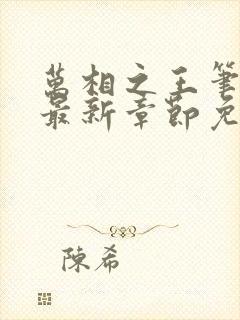 萬相之王筆
最新章節免
陳希